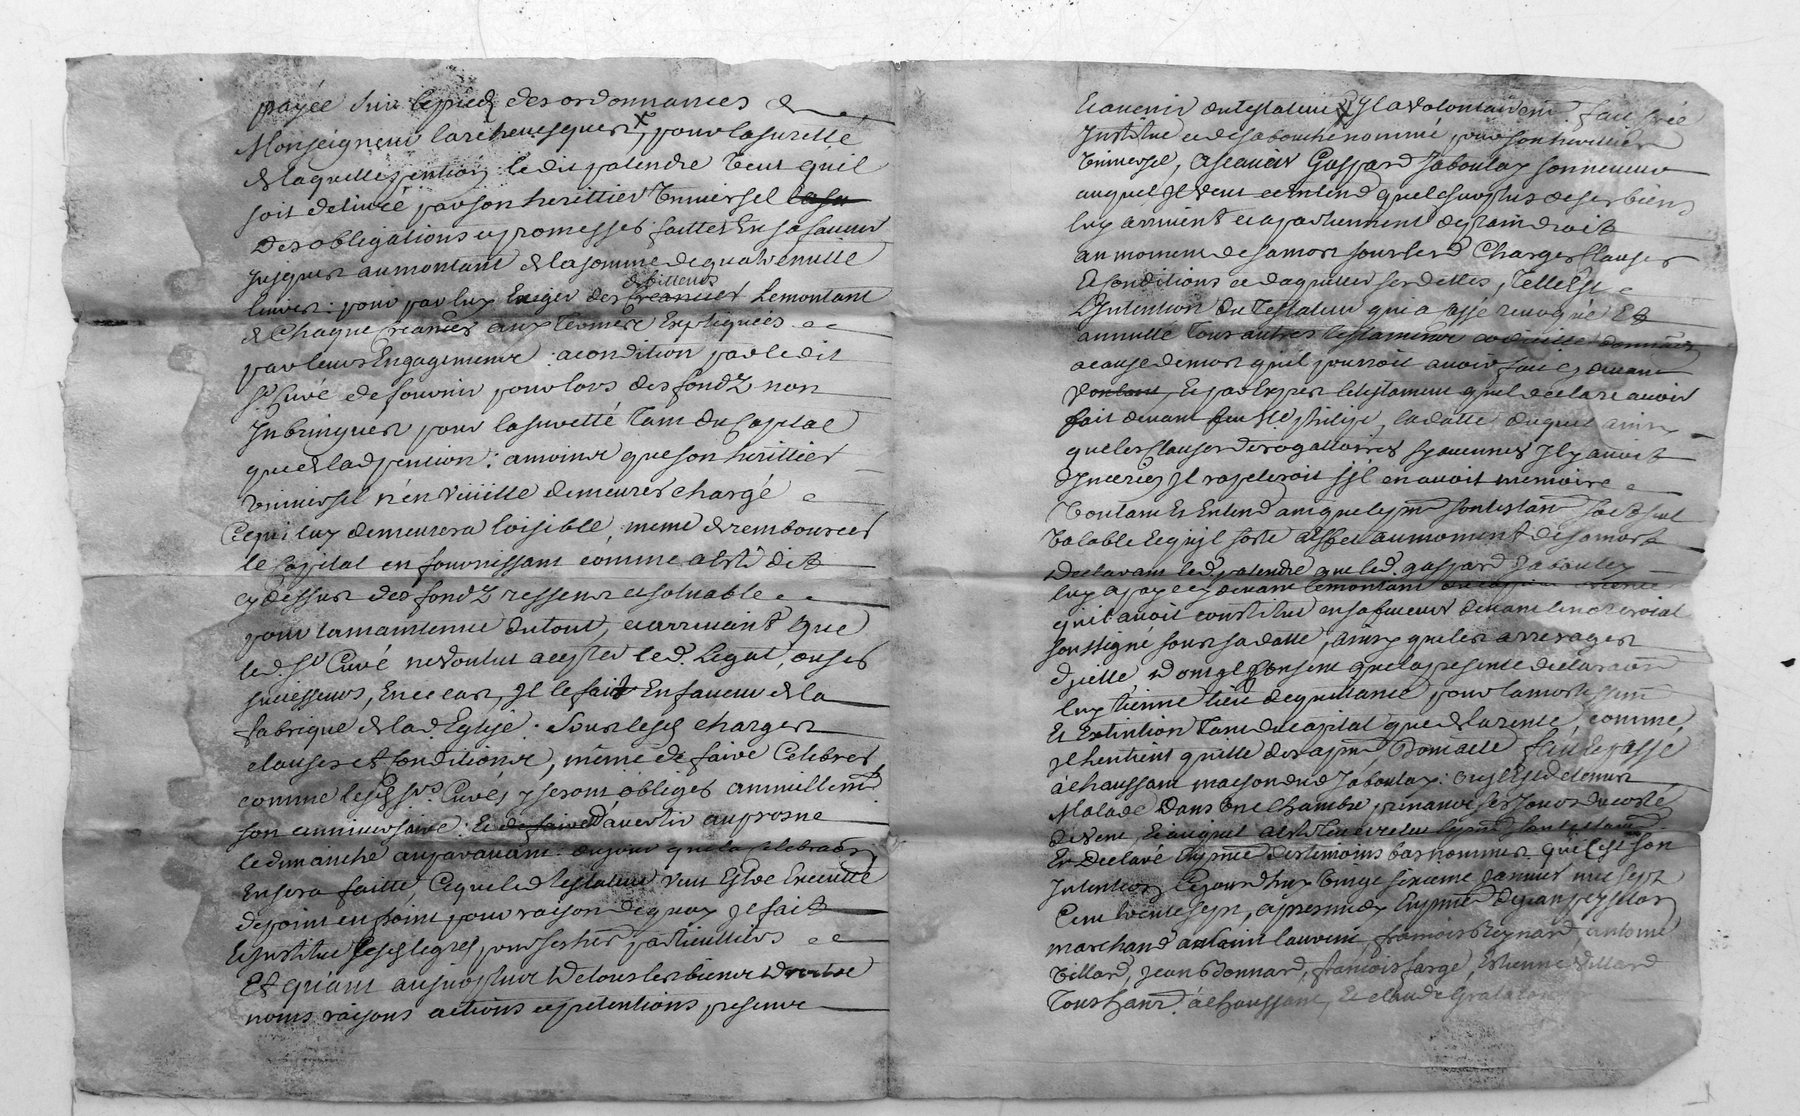 payée sur le pied des ordonnances de
Monseigneur larchevesque, pour la suretté
de laquelle pention led. palendre veut quil
soit delivré par son herittier universel
Des obligations et promesses faittes En sa faveur
jusques au montant de la somme de quatre mille
livres : pour par luy Exiger des debitteurs Le montant
de Chaque creances aux termes Expliquées
par leurs Engagements : a condition par ledit
Sr Curé de fournir pour lors des fondz non
Inbringués pour la suretté Tant du Capital
que de lad. pention : a moins que son herittier
universel n'en veuille demeurer chargé
Ce qui luy demeurera loisible, meme de rembourcer
le Capital en fournissant comme a esté dit
cy dessus des fondz resseans et soluable
pour la maintenue du tout, et arrivant que
led. Sr Curé ne voulut accepter led. Legat, ou ses
successeurs, En ce cas, Il le fait En faveur de la
fabrique de lad. Eglise : Sous lesd. charges
clauses et Conditions, même de faire Celebrer
comme lesd. Srs Curés y seront obligés annuellemt.
son anniversaire : Et de faire d'avertir au prosne
le dimanche auparavant du jour que la celebration
En sera faitte Ce que led Testateur veut Estre Executté
de point en point pour raison de quoy Il fait
Et institue lesd. legués pour ses hers. particulliers
Et quant au surplus de tous les biens droits
noms raisons actions et pretentions presents
Et avenir du testateur Il a volontairemt. fait créé
Institué et de sa bouche nommé pour son herittier
Universel, a scavoir Gaspard Jaboulay son neveu
auquel Il veut et entend que le surplus de ses biens
luy arrivent et apartiennent de plain droit
au moment de sa mort sous lesd. Charges Clauses
Et Conditions et d'aquitter ses dettes, Telle Est
L'Intention du Testateur qui a cassé revoqué Et
annullé Tous autres testaments codicilles donnations
a cause de mort qu'il pourroit avoir fait cy devant
Voulant, Et par Exprès le testament qu'il declare avoir
fait devant feu Me philipe, la datte duquel ainsy
que les Clauses derogattoires sy aucunes Il y avoit
d'Incerées Il rapeleroit s'jl en avoit memoire
Voulant Et Entend ainy que le pnt. son testamt soit seul
Valable Et qu'il sorte Effet au moment de sa mort
Declarant led. palendre que led. gaspard Jaboulay
luy a payé cy devant le montant
qu'il avoit constitué en sa faveur devant le notre royal
soussigné sous sa datte, ainsy que les arrerages
d'jcelle dont Il Consent que la presente declaration
luy tienne lieu de quittance pour lamortissemt.
Et Extintion Tant du capital que de la rente, comme
a chaussant maison dud Jaboulay : ou Il Est detenu
Malade Dans une Chambre prenant ses Jours du costé
de vent,
Et Declaré En pnce des temoins bas nommés que C'est son
Intention Ce jourd'huy vingt sixieme Janvier mil sept
Cent trente sept, après midy En pnce de jean peysselon
marchand antoine lauvent, francois Reynard, antoine
Villard, Jean Bonnard, francois farge, Estienne Villard
Tous hants. à chaussant, Et claude Grataloup